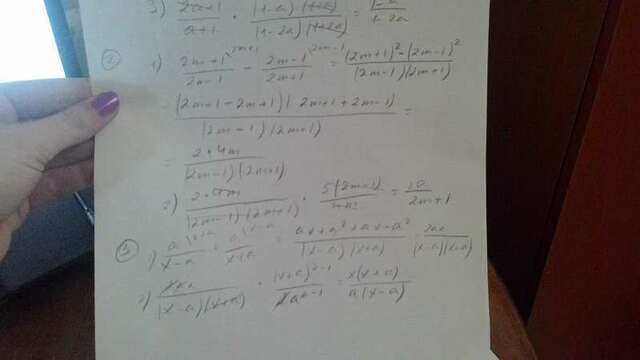 3) (2a+1)/(a+1) · ((1-a)(1+2a))/((1-2a)(1+2a)) = (1-a)/(1-2a)
② 1) (2m+1)/(2m-1) \2m+1 - (2m-1)/(2m+1) \2m-1 = ((2m+1)² - (2m-1)²)/((2m-1)(2m+1))
((2m+1-2m+1)(2m+1+2m-1))/((2m-1)(2m+1)) =
= (2·4m)/((2m-1)(2m+1))
2) (2·4m)/((2m-1)(2m+1)) · (5(2m-1))/(4m) = 10/(2m+1)
③ 1) a/(x-a) \x+a + a/(x+a) \x-a = (ax+a²+ax-a²)/((x-a)(x+a)) = 2ax/((x-a)(x+a))
2) 2ax/((x-a)(x+a)) · (x+a)²⁻¹/(2a²⁻¹) = x(x+a)/(a(x-a))